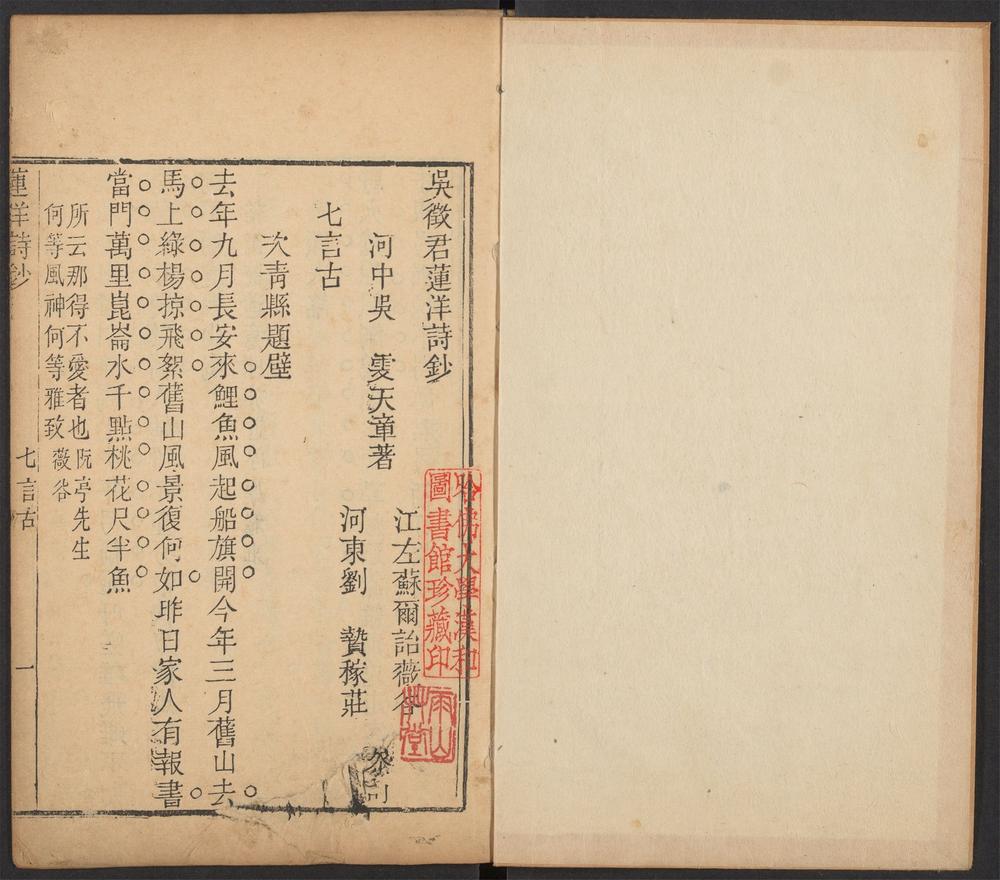 吳徵君蓮洋詩鈔
河中吳　雯天章著
江左蘇爾詒薇谷
河東劉　贄稼莊
參訂
七言古
次青縣題壁
去年九月長安來鯉魚風起船旗開今年三月舊山去
馬上綠楊掠飛絮舊山風景復何如昨日家人有報書
當門萬里崑崙水千點桃花尺半魚
所云那得不愛者也阮亭先生
何等風神何等雅致薇谷
蓮洋詩鈔
七言古
一
哈佛大學漢和
圖書館珍藏印
雨山
草堂